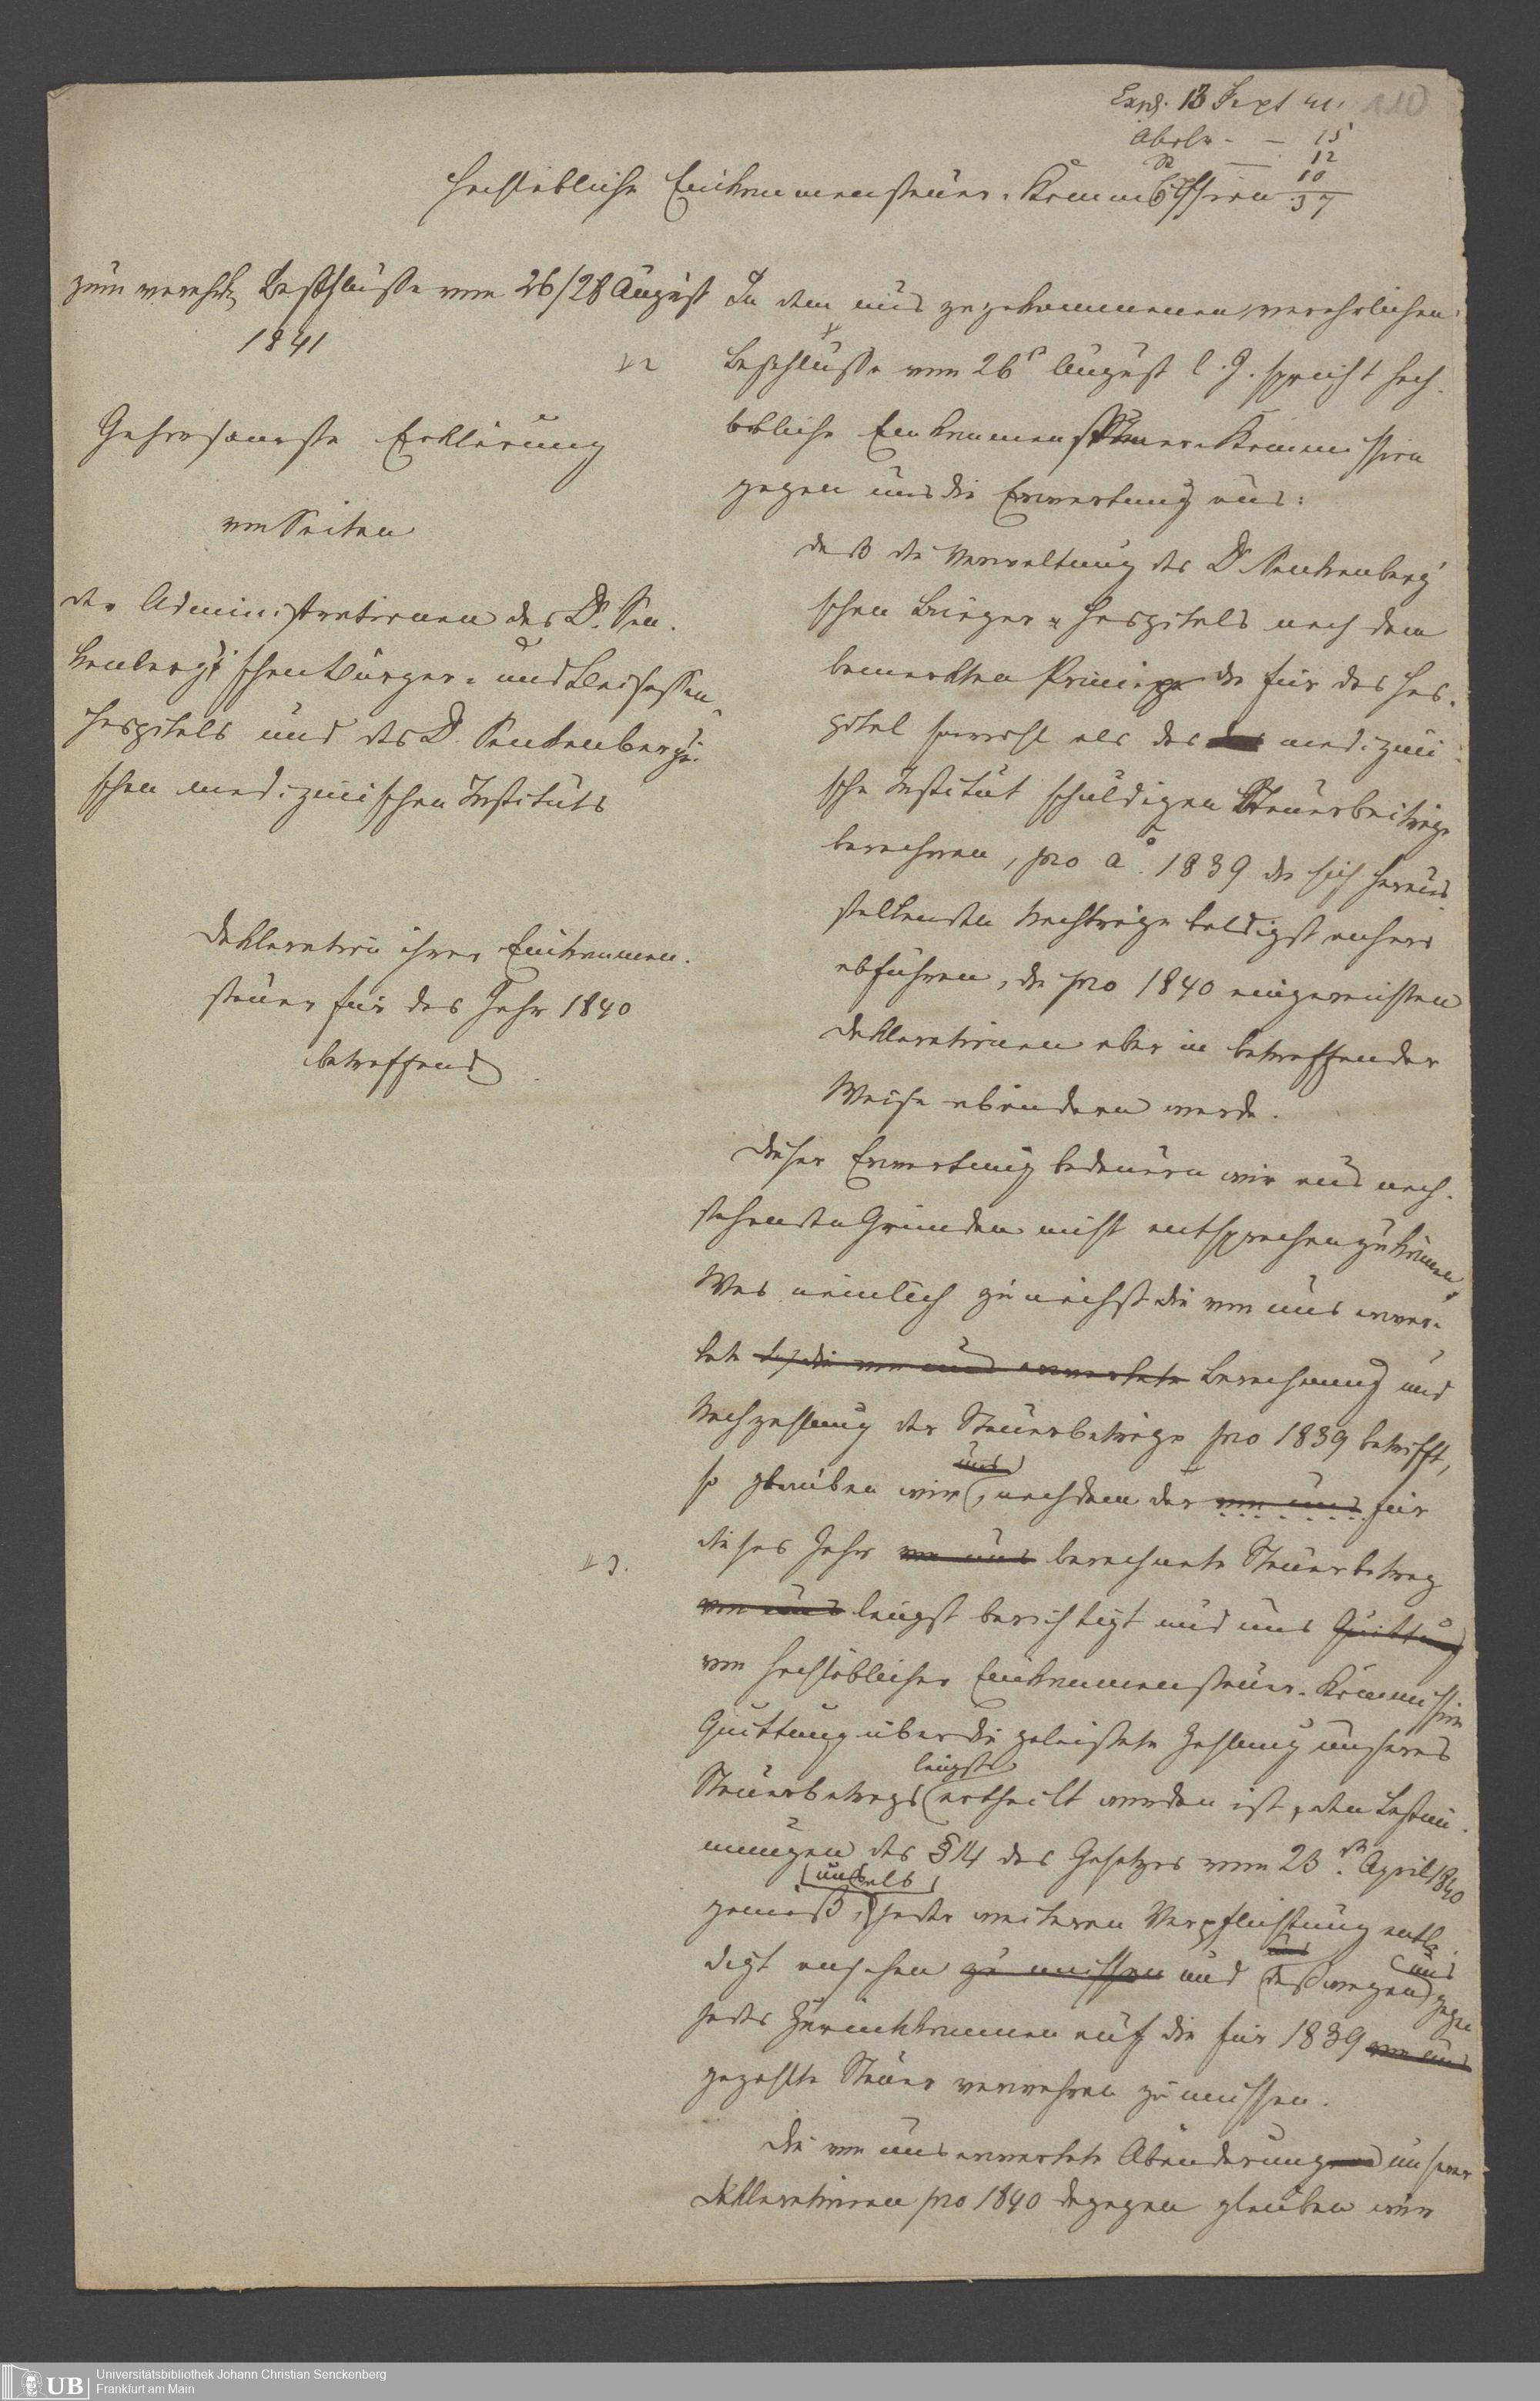 Exped. 13 Sept 41.
110
Abschr - — 15
St — 12
10
37
Hochlöbliche Einkommensteuer-Kommission
zum verehrl. Beschlusse vom 26/28 August
1841
Gehorsamste Erklärung
von Seiten
der Administrationen des Dr. Sen-
kenbergi'schen Bürger- und Beisassen-
hospitals und des Dr. Senkenbergi-
schen medizinischen Instituts
Deklaration ihrer Einkommen-
steuer für das Jahr 1840
betreffend
In dem uns zugekommenen verehrlichen
Beschlusse vom 26n August l. J. spricht hoch-
löbliche Einkommensteuer-Kommission
gegen uns die Erwartung aus:
daß die Verwaltung des Dr. Senkenberg'
schen Bürger-Hospitals nach dem
bemerkten Prinzipe die für das Hos-
pital sowohl als das medizini-
sche Institut schuldigen Steuerbeiträge
berechnen, pro ao. 1839 die sich heraus-
stellenden Nachträge baldigst anhero
abführen, die pro 1840 eingereichten
Deklarationen aber in betreffender
Weise abändern werde.
Dieser Erwartung bedauern wir aus nach-
stehenden Gründen nicht entsprechen zu können.
Was nämlich zunächst die von uns erwar-
tete die von uns erwartete Berechnung und
Nachzahlung der Steuerbeträge pro 1839 betrifft,
so glauben wir uns, nachdem der von uns für
dieses Jahr von uns berechnete Steuerbetrag
von uns längst berichtigt und uns Quittung
von hochlöblicher Einkommensteuer-Kommission
Quittung über die geleistete Zahlung unseres
Steuerbetrags längst ertheilt worden ist, den Bestim-
mungen des § 14 des Gesetzes vom 23n. April 1840
gemäß, und jeder weiteren Verpflichtung entle-
digt ansehen zu müssen und uns deßwegen uns gegen
jedes Zurückkommen auf die für 1839 von uns
gezahlte Steuer verwahren zu müssen.
Die von uns erwartete Abänderung unserer
Deklarationen pro 1840 dagegen glauben wir
UB
Universitätsbibliothek Johann Christian Senckenberg
Frankfurt am Main